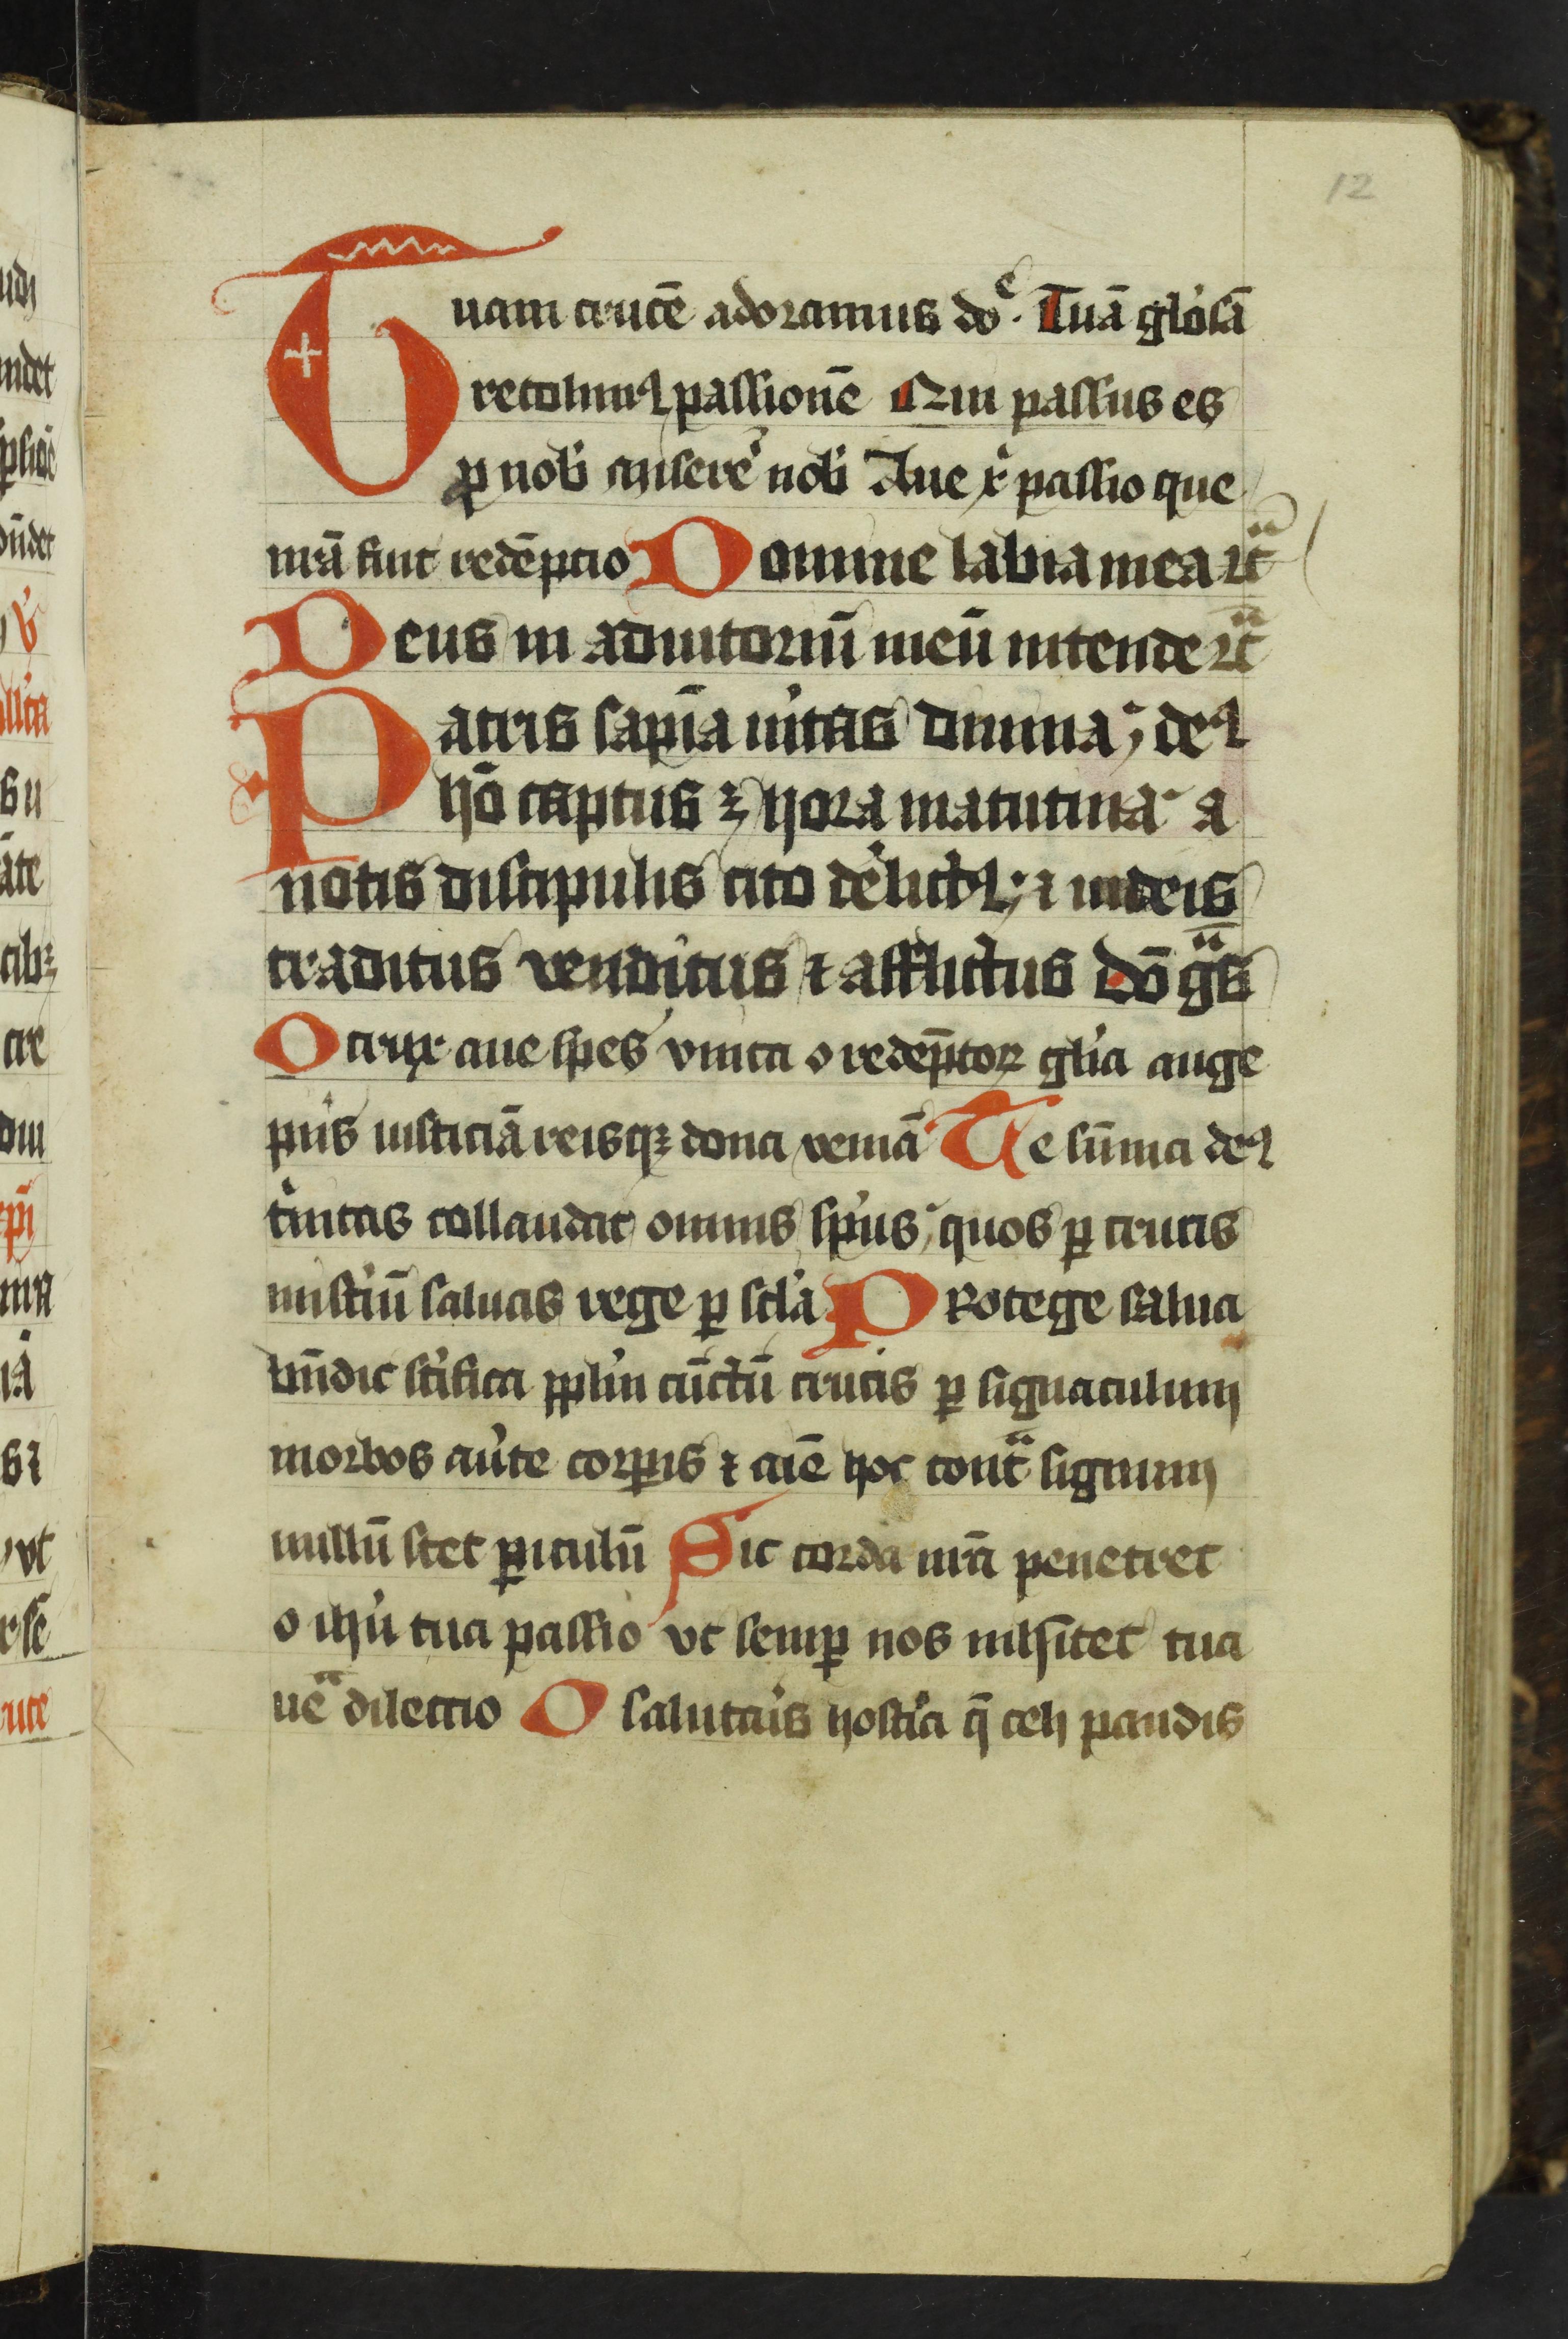 12
Tuam crucē adoramus doͤ. Tuā glo'sā
recolim⁹ passionē Qui passus es
ꝓ nob' miserē nob' Aue x' passio que
nr̄ā fuit redēptio Domine labia mea ꝛc̄
Deus in adiutoriū meū intende ꝛc̄
Patris sapīa u'itas diuina, de⁹
hō captus ē hora matutina a
notis discipulis cito de'lict⁹, a iudeis
traditus venditus ⁊ afflictus Dō gͣs
O crux aue spes vnica o redēptor gl'ia auge
piis iusticiā reisqꝫ dona veniā Te sūma de⁹
t'nitas collaudat omnis sp'us, quos ꝑ crucis
mist'iū saluas rege ꝑ scl'a Protege salua
bn̄dic sc'ifica ppl'm cūctū crucis ꝑ signaculum
morbos au'te corꝑis ⁊ aīe hoc contͣ signum
nullū stet ꝑiculū Sic corda nr̄a penetret
o ihū tua passio vt semꝑ nos inh'itet tua
ueͣ dilectio O saluta'is hostia q̄ celi pandis